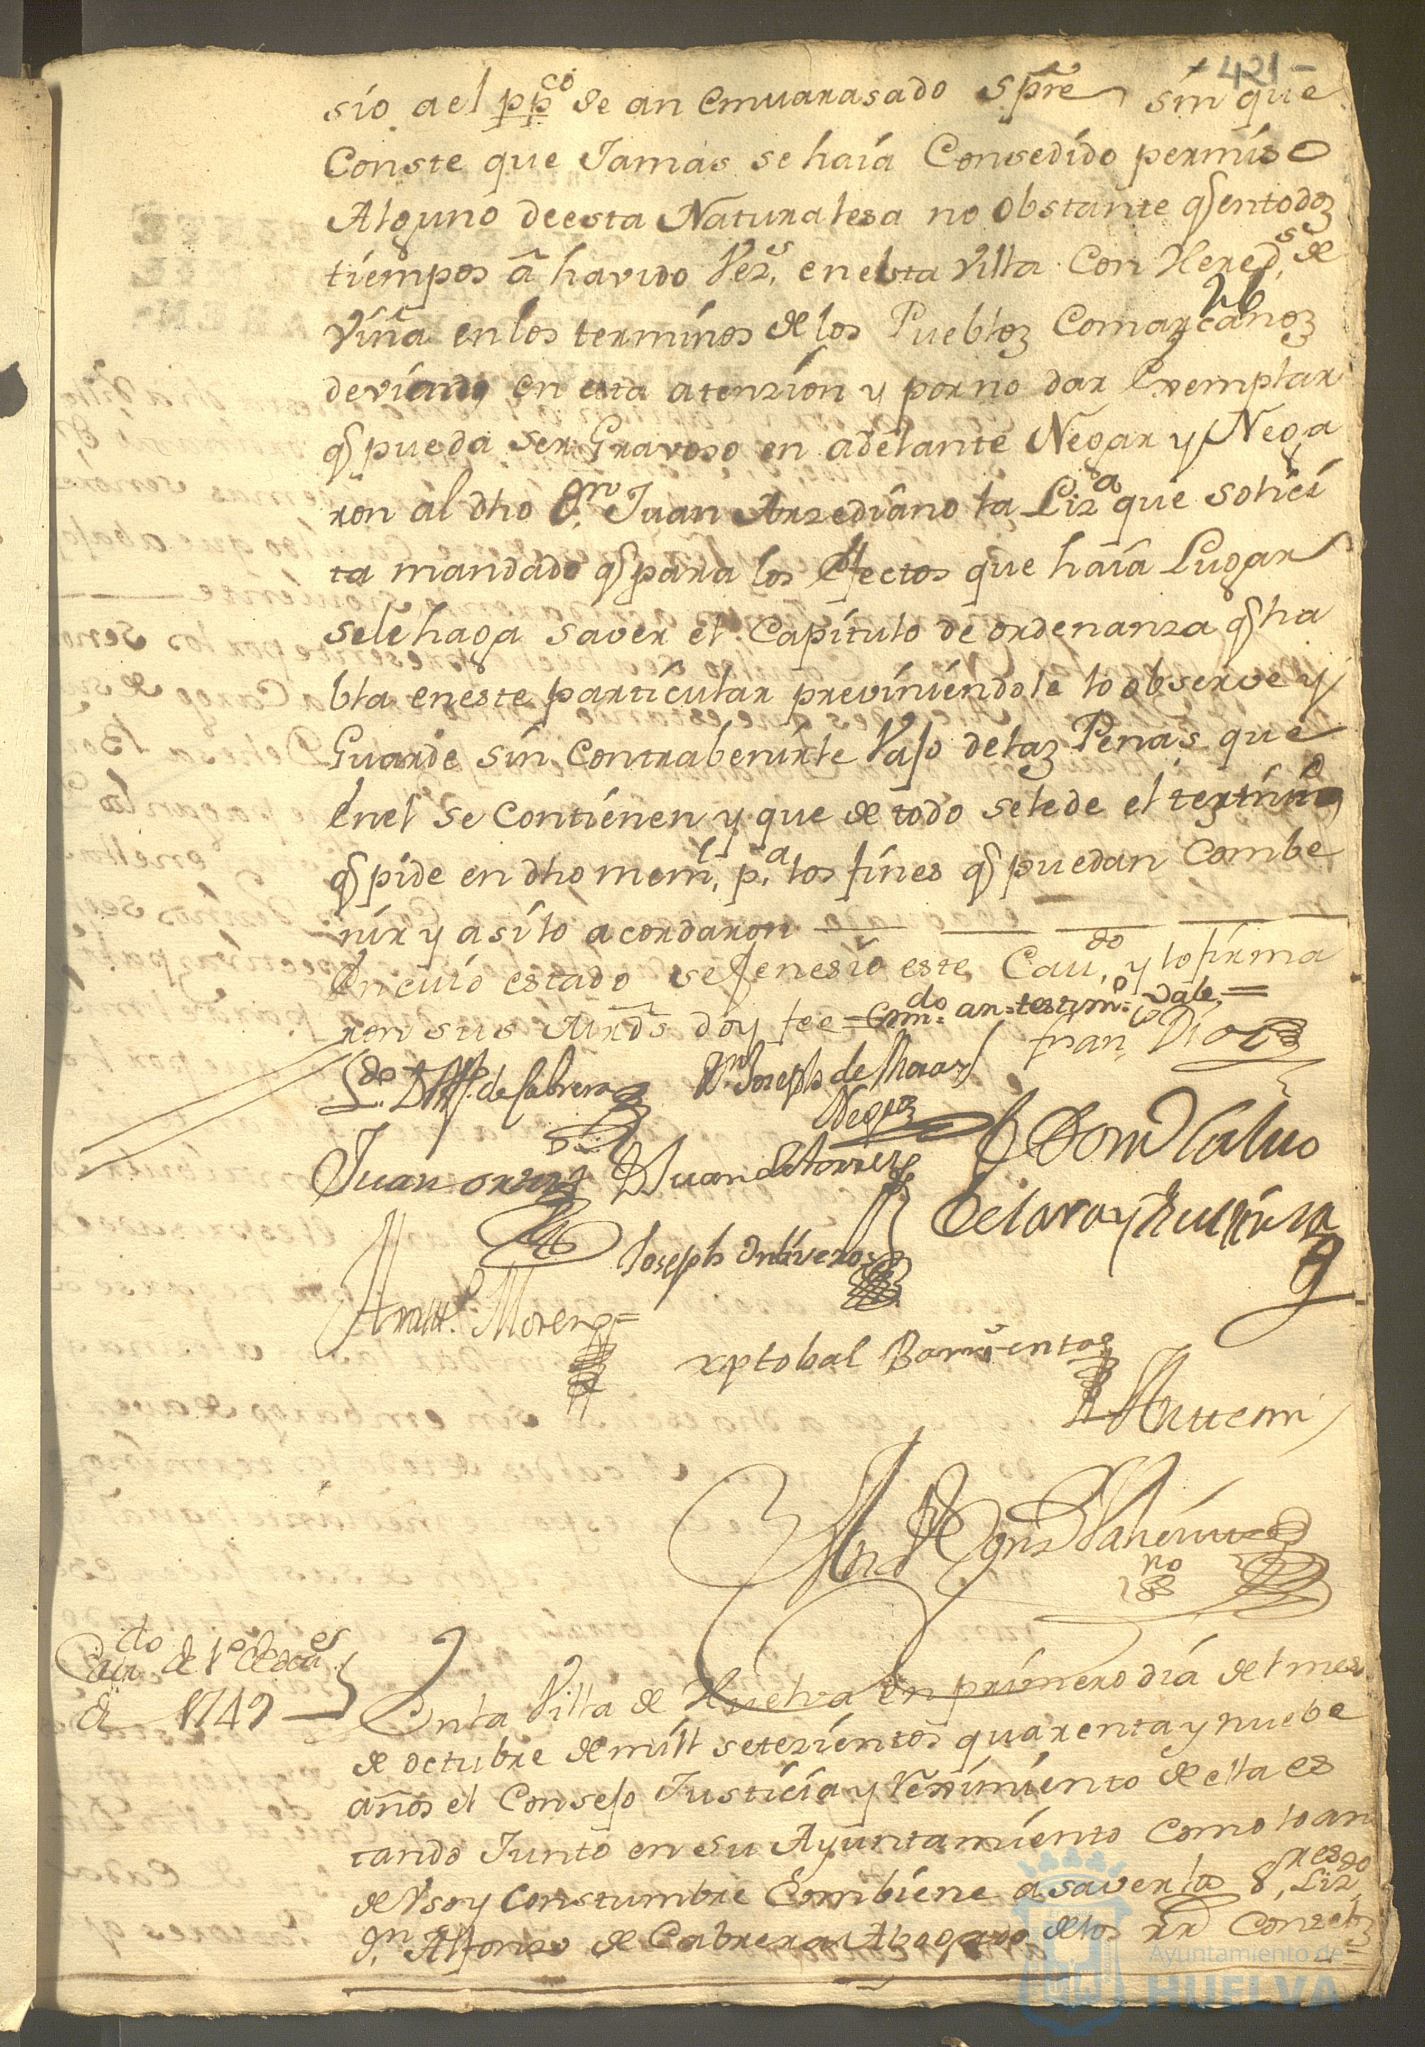 421-
sio ael ppco se an emvarasado spre sin que
Conste que Jamas se haia Consedido permiso
Alguno de esta Naturalesa no obstante q entodoz
tiempos â havido Vezs. en esta Villa Con Hereds. de
Viña en los terminos de los Puebloz Comarcanoz
deviendo en esta atenzion y por no dar Exemplar
q pueda ser Gravoso en adelante Negar y Nega
ron al dho Dn. Juan Arzediano la Liza que solici
ta mandado q para los efectos que haia Lugar
sele haga saver el Capitulo de ordenanza q ha
bla en este particular previniendole lo observe y
Guarde sin contrabenirle Vajo delaz Penas que
Enel se Contienen y que de todo selede el testimo
q pide en dho meml. pa. los fines q puedan Combe
nir y asilo acordaron
En cuio estado se fenesió este Cavdo. y lo firma
ron sus mrds doy fee = Commdo. an = testimo. = Vale =
Franco Diaz
Ldo. D. Alfo. de Cabrera
Dn Joseph de Moras
Negro
Juan ortiz
D Juan de Torres
D Domo Calvo
de lara y
Joseph Ontiveros
Moreno =
xptobal Barrientos
Antte mi
no
Cavdo de 1o de octues
de 1749
Enla Villa de Huelva en primero dia del mes
de octubre de mill setezientos quarenta y nuebe
años el Consejo Justicia y Reximiento de ella es
tando Junto en su Ayuntamiento como lo an
de Vso y Constumbre Combiene a saver los Sres. Lizdo
Dn. Alfonso de Cabrera Abogado delos RR Conzejoz
Ayuntamiento de
HUELVA